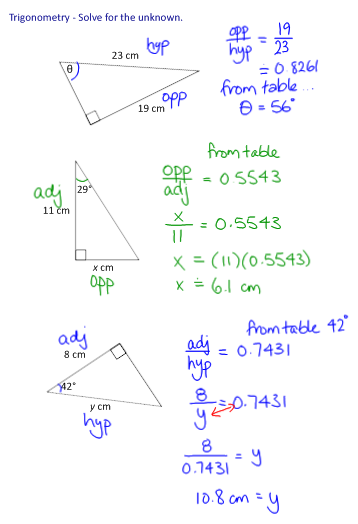 Trigonometry - Solve for the unknown.
hyp
23 cm
θ
19 cm
opp
opp/hyp = 19/23
= 0.8261
from table...
θ = 56°
from table
adj
11 cm
29°
x cm
opp
opp/adj = 0.5543
x/11 = 0.5543
x = (11)(0.5543)
x ≐ 6.1 cm
from table 42°
adj
8 cm
42°
y cm
hyp
adj/hyp = 0.7431
8/y = 0.7431
8/0.7431 = y
10.8 cm = y